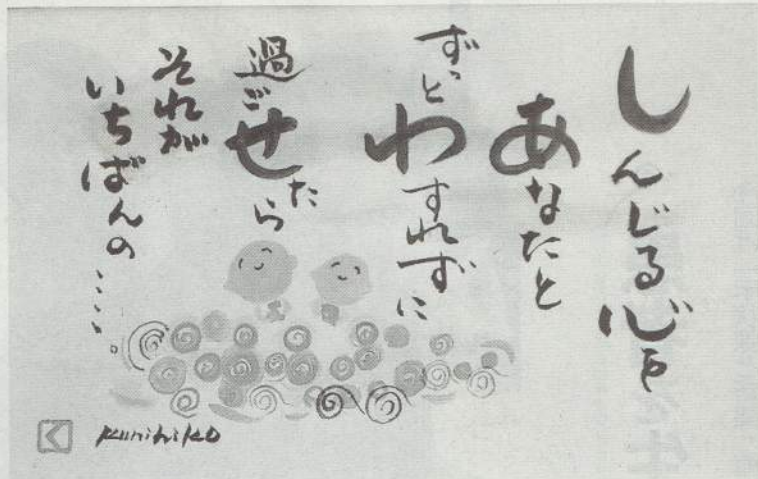 しんじる心を
あなたと
ずっとわすれずに
過ごせたら
それが
いちばんの……。
く kunihiko